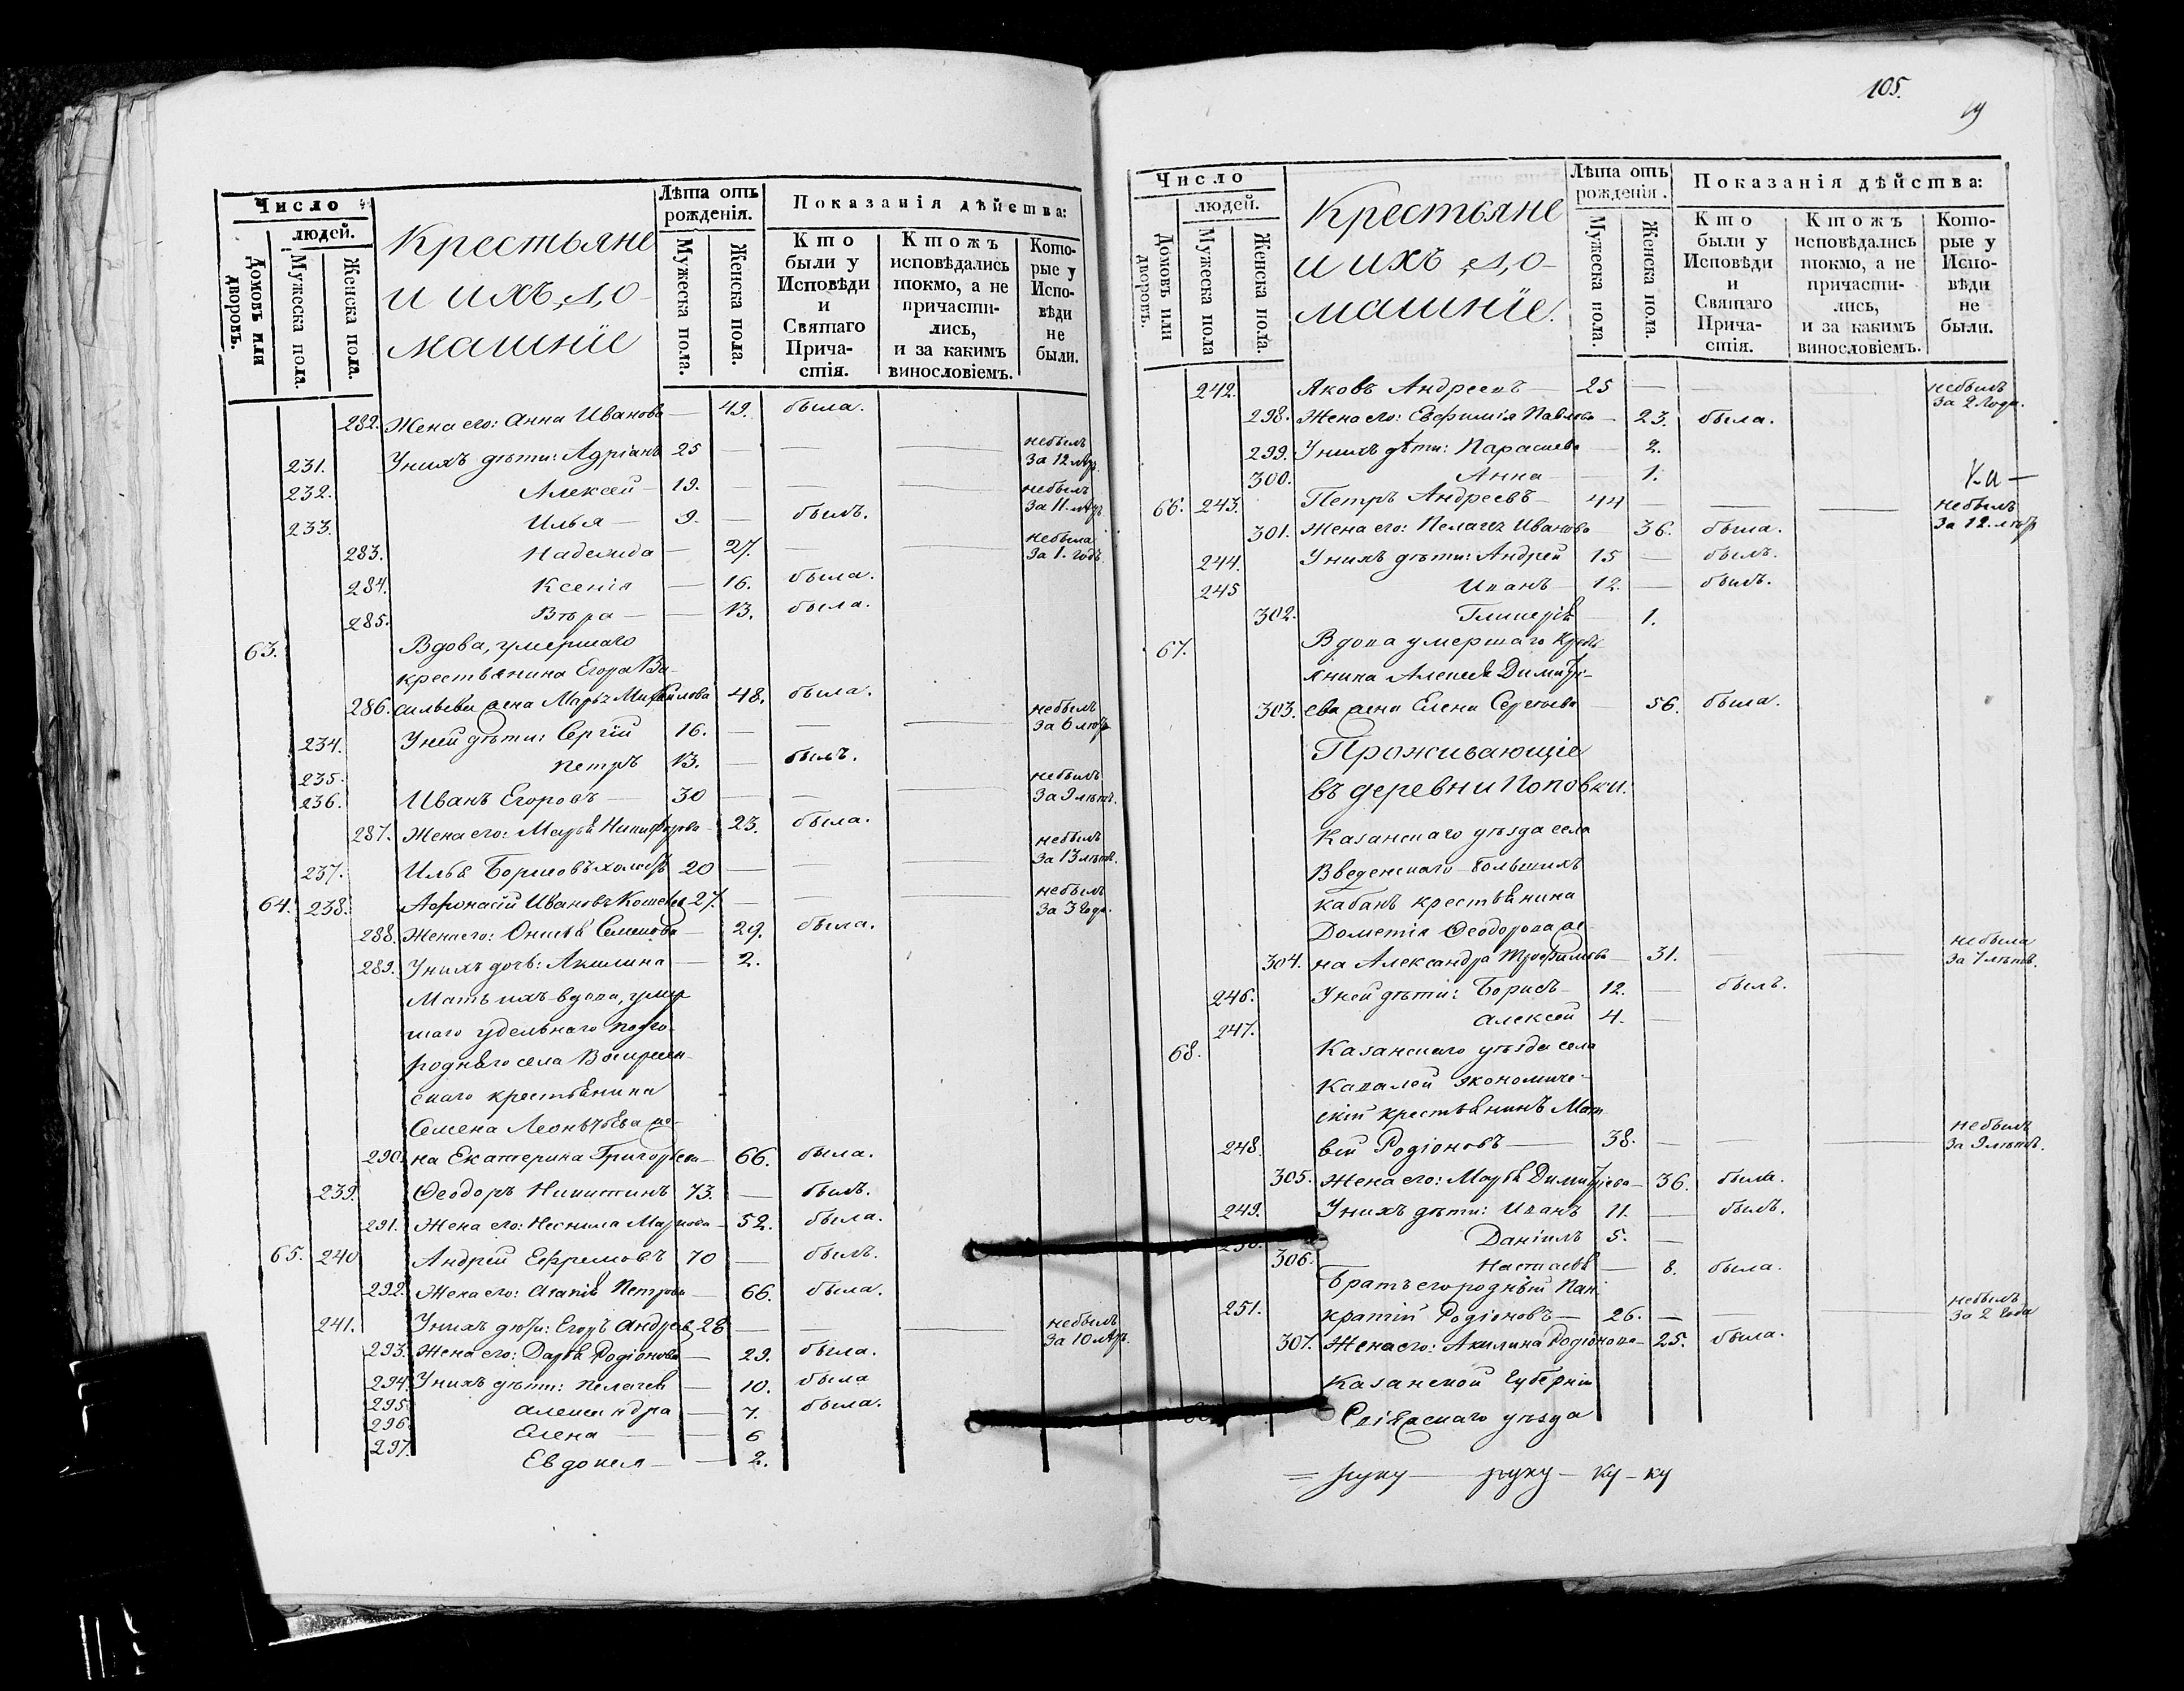 Число
людей.
Домовъ или дворовъ.
Мужеска пола.
Женска пола.
Крестьяне
и ихъ до-
машніе
Лѣта отъ
рожденія.
Мужеска пола.
Женска пола.
Показанія дѣйства:
Кто
были у
Исповѣди
и
Святаго
Прича-
стія.
Ктожъ
исповѣдались
токмо, а не
причасти-
лись,
и за какимъ
винословіемъ.
Кото-
рые у
Испо-
вѣди
не
были.
282. Жена его: Анна Иванова — 49. была.
231. У нихъ дѣти: Адріанъ 25 — — — небылъ за 12 лѣтъ
232. Алексѣй — 19. — — — небылъ за 11 лѣтъ
233. Илья — 9. — былъ.
283. Надежда — 27. — — небыла за 1. годъ
284. Ксенія — 16. была.
285. Вѣра — — 13. была.
63. Вдова, умершаго
крестьянина Егора Ва-
286. сильева жена Марья Михайлова 48. была.
234. У ней дѣти: Сергій 16. — — небылъ за 6 лѣтъ
235. Петръ 13. — былъ.
236. Иванъ Егоровъ — 30 — — — небылъ за 9 лѣтъ.
287. Жена его: Марья Никифорова — 23. была.
237. Илья Борисовъ холостъ 20 — — — небылъ за 13 лѣтъ.
64. 238. Афонасій Ивановъ 27. — — — небылъ за 3 года.
288. Жена его: Онисья Семенова — 29. была.
289. У нихъ дочь: Акилина — 2.
Мать ихъ вдова, умер
шаго удельнаго подго-
роднаго села Воскресен-
скаго крестьянина
Семена Леонтьева же-
290. на Екатерина Григорьева — 66. была.
239. Ѳеодоръ Никитинъ 73. — былъ.
291. Жена его: Неонила Маркова — 52. была.
65. 240 Андрей Ефремовъ 70 — былъ.
292. Жена его: Агапія Петрова — 66. была.
241. У нихъ дѣти: Егоръ Андреевъ 28 — — — небылъ за 10 лѣтъ.
293. Жена его: Дарья Родіонова — 29. была.
294. У нихъ дѣти: Пелагея — 10. была
295. Александра — 7. была.
296. Елена — — 6
297. Евдокія — — 2.
105.
Число
людей.
Домовъ или дворовъ.
Мужеска пола
Женска пола.
Крестьяне
и ихъ до-
машніе.
Лѣта отъ
рожденія.
Мужеска пола.
Женска пола.
Показанія дѣйства:
Кто
были у
Исповѣди
и
Святаго
Прича-
стія.
Ктожъ
исповѣдались
токмо, а не
причасти-
лись,
и за какимъ
винословіемъ.
Кото-
рые у
Испо-
вѣди
не
были.
242. Яковъ Андреевъ — 25 — — небылъ за 2 года.
298. Жена его: Евфимія Павлова — 23. была.
299. У нихъ дѣти: Парасиева — 2.
300. Анна — — 1.
66. 243. Петръ Андреевъ — 44 — — — небылъ за 12. лѣтъ
301. Жена его: Пелагея Иванова 36. была.
244. У нихъ дѣти: Андрей 15 — былъ.
245 Иванъ — 12. — былъ.
302. Гликерія — 1.
67. Вдова умершаго крест-
янина Алексѣя Димитрі-
303. ева жена Елена Сергеева — 56. была.
Проживающіе
въ деревни Поповки.
Казанскаго уѣзда села
Введенскаго Большихъ
Кабанъ крестьянина
Дометія Ѳеодорова же-
304. на Александра Трофимова — 31. — небыла за 7 лѣтъ.
246. У ней дѣти: Борисъ — 12. — былъ.
247. Алексѣй 4. —
68. Казанскаго уѣзда села
экономиче-
скій крестьянинъ Мат
248. вій Родіоновъ — 38. — — небылъ за 9 лѣтъ.
305. Жена его: Марья Димитріева — 36. была.
249. У нихъ дѣти: Иванъ 11. — былъ.
Даніилъ 5. —
306. Настасья — 8. была.
Братъ его родный Пан-
251. кратій Родіоновъ — 26. — — — небылъ за 2 года
307. Жена его: Акилина Родіонова — 25. была.
Казанской губерніи
Свіяжскаго уѣзда